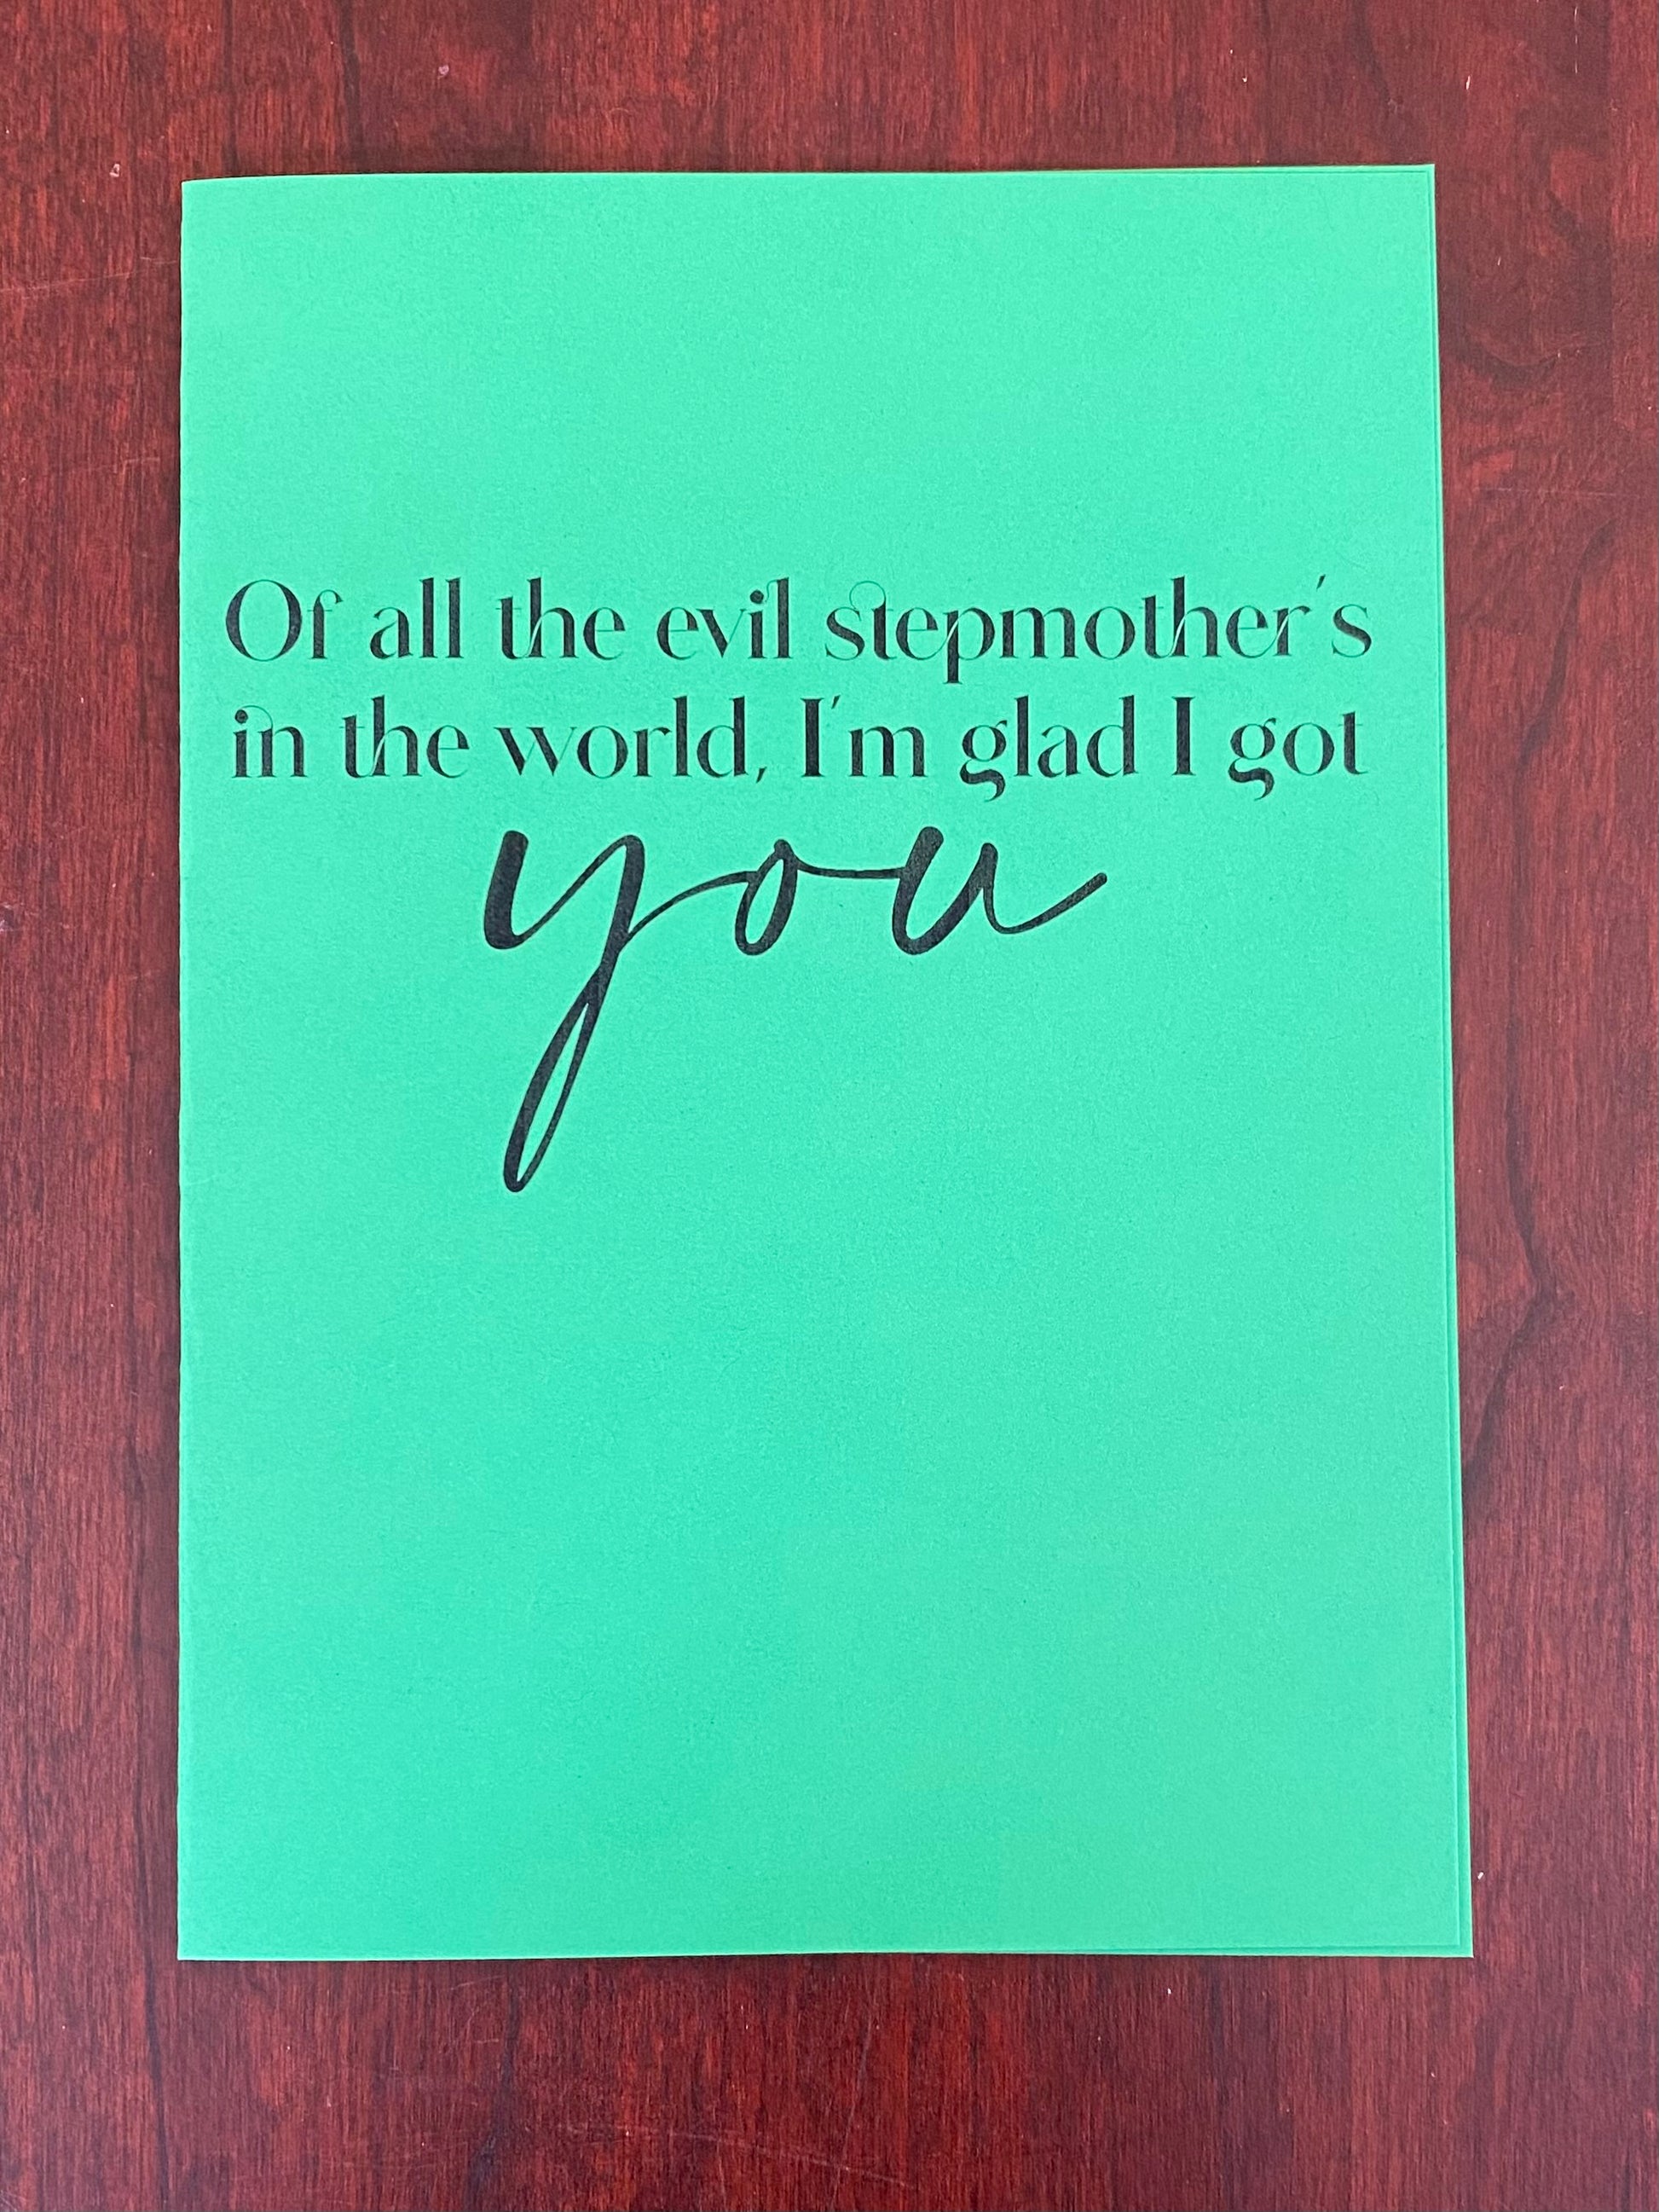 Of all the evil stepmother's
in the world, I'm glad I got
you